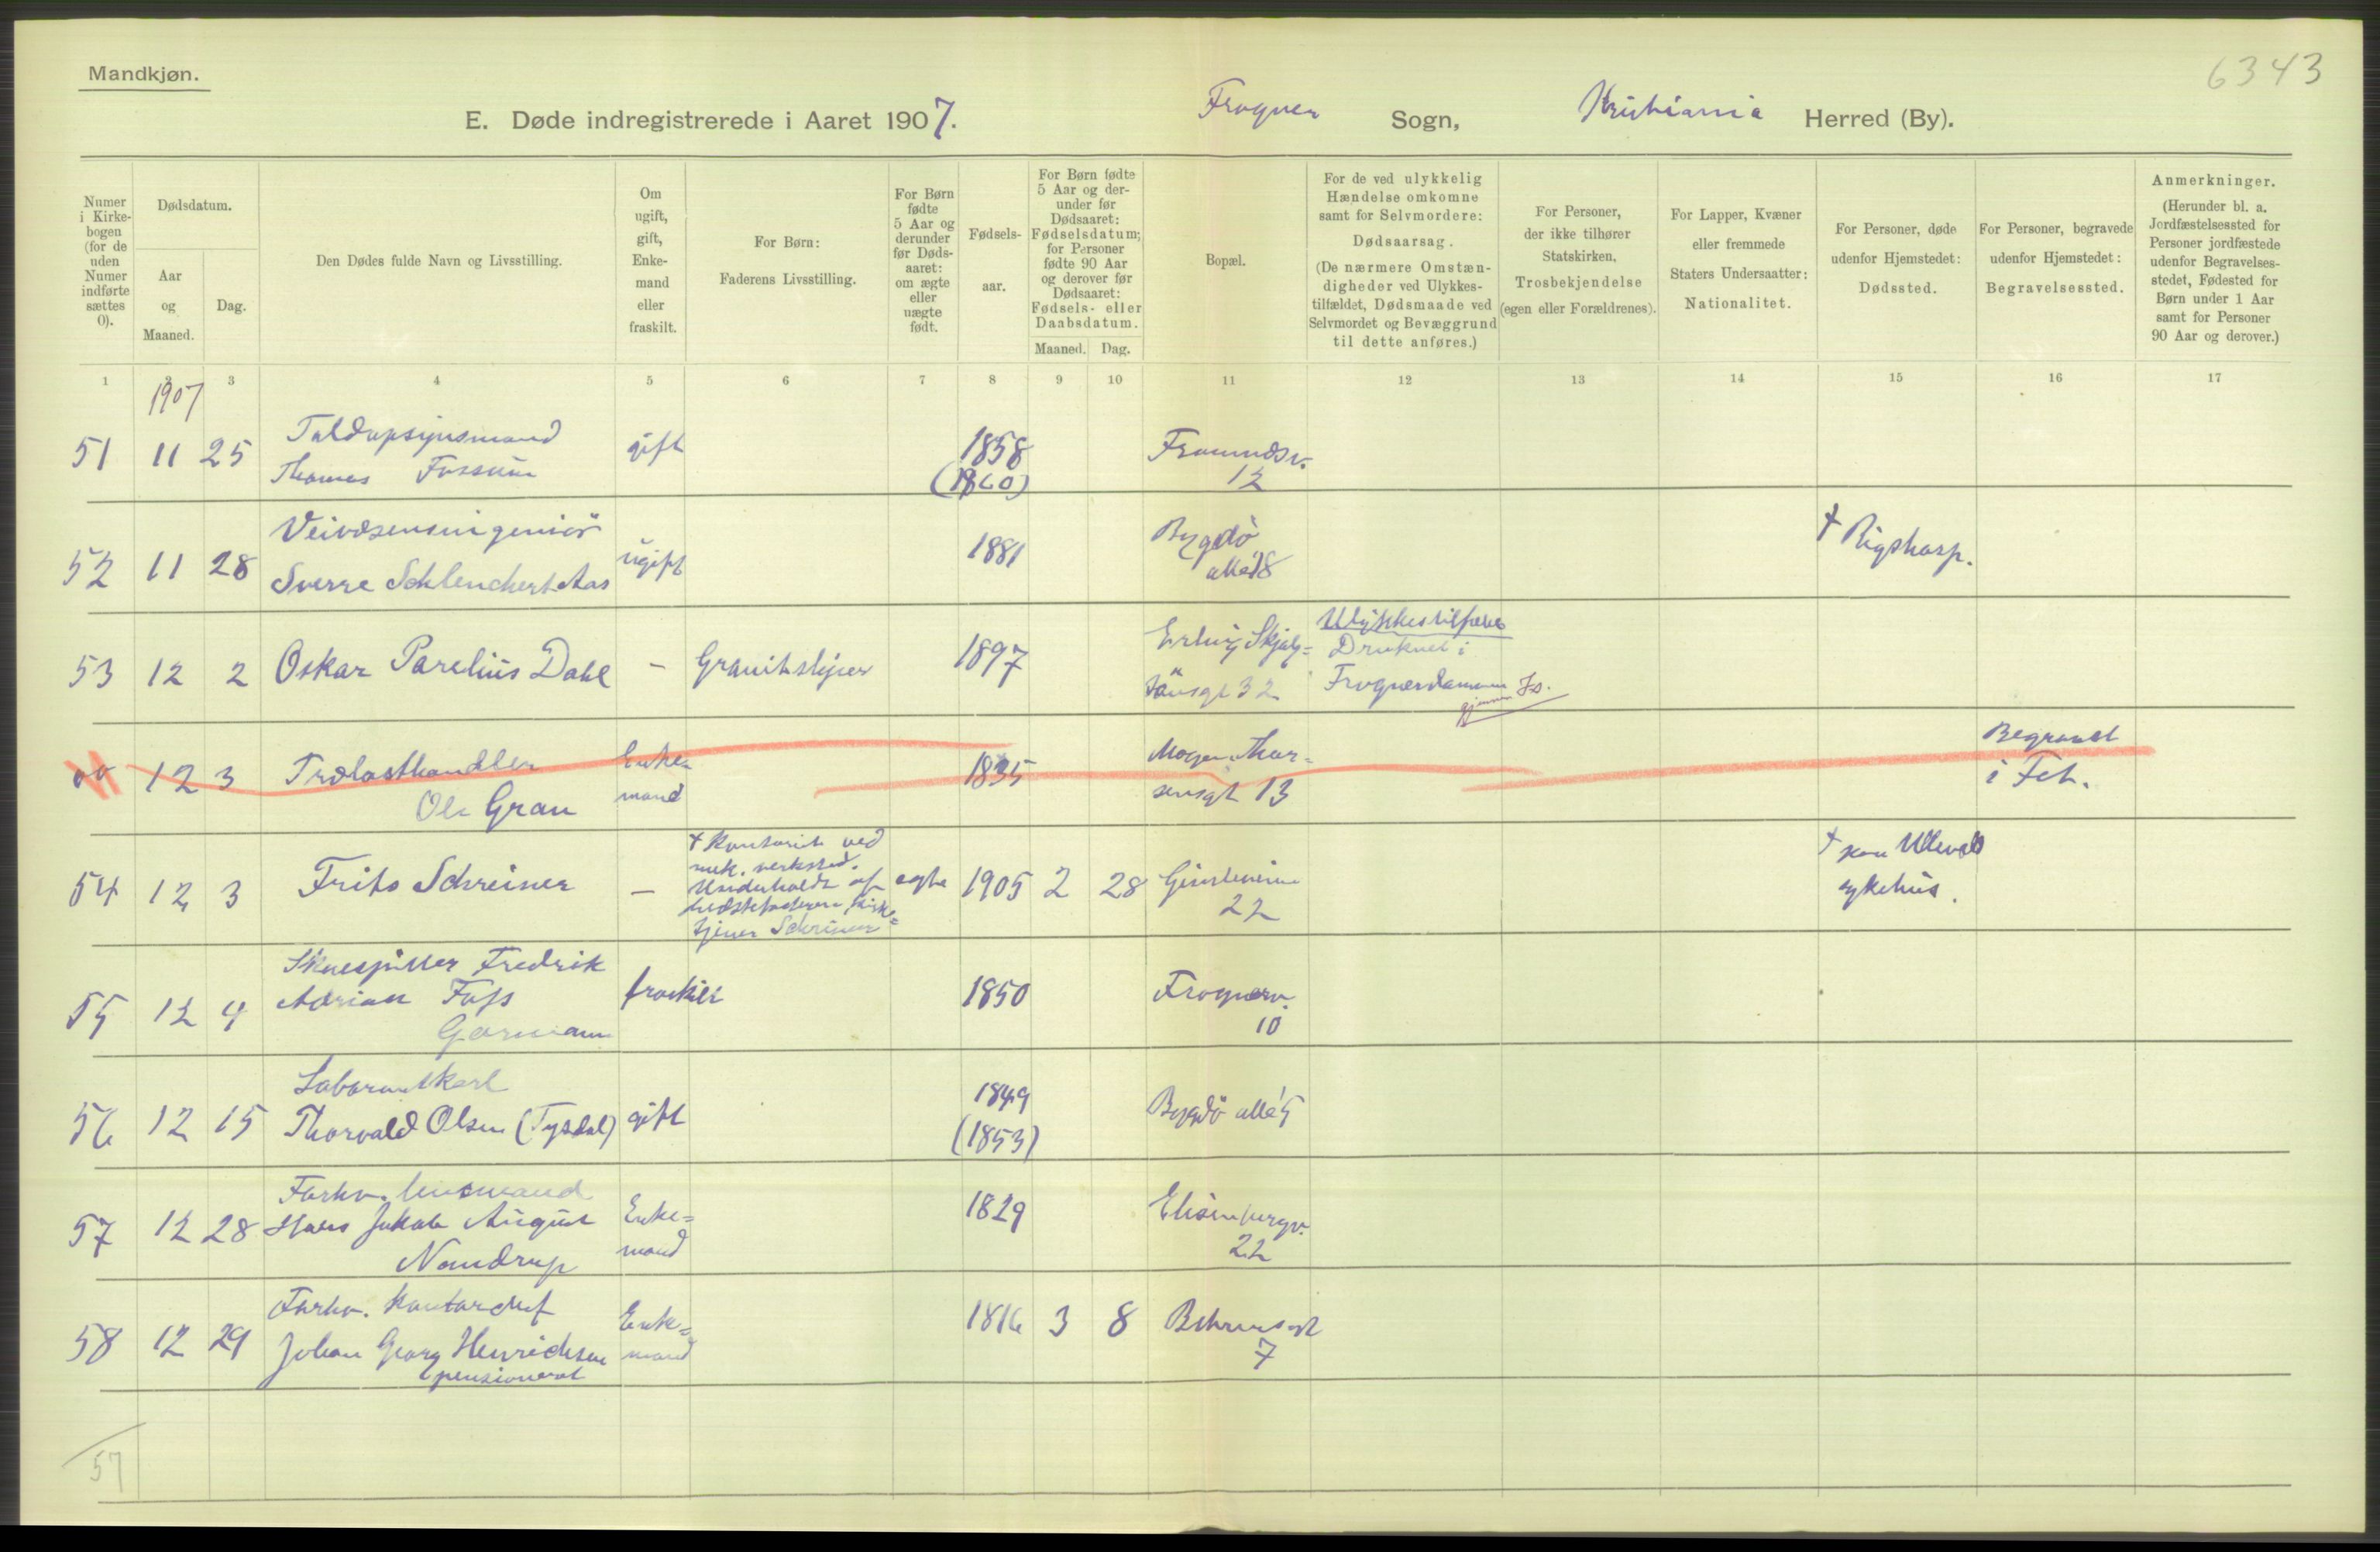 Mandkjøn.
6343
E. Døde indregistrerede i Aaret 1907.
Frogner Sogn, Kristiania Herred (By).
Numer i Kirkebogen (for de uden Numer indførte sættes 0).
Dødsdatum.
Aar og Maaned.
Dag.
Den Dødes fulde Navn og Livsstilling.
Om ugift, gift, Enkemand eller fraskilt.
For Børn: Faderens Livsstilling.
For Børn fødte 5 Aar og derunder før Dødsaaret: om ægte eller uægte født.
Fødselsaar.
For Børn fødte 5 Aar og derunder før Dødsaaret: Fødselsdatum; for Personer fødte 90 Aar og derover før Dødsaaret: Fødsels- eller Daabsdatum.
Maaned. Dag.
Bopæl.
For de ved ulykkelig Hændelse omkomne samt for Selvmordere: Dødsaarsag. (De nærmere Omstændigheder ved Ulykkestilfældet, Dødsmaade ved Selvmordet og Bevæggrund til dette anføres.)
For Personer, der ikke tilhører Statskirken, Trosbekjendelse (egen eller Forældrenes).
For Lapper, Kvæner eller fremmede Staters Undersaatter: Nationalitet.
For Personer, døde udenfor Hjemstedet: Dødssted.
For Personer, begravede udenfor Hjemstedet: Begravelsessted.
Anmerkninger. (Herunder bl. a. Jordfæstelsessted for Personer jordfæstede udenfor Begravelsesstedet, Fødested for Børn under 1 Aar samt for Personer 90 Aar og derover.)
1 2 3 4 5 6 7 8 9 10 11 12 13 14 15 16 17
1907
51 11 25 Toldopsynsmand Thomas Fossum gift 1858 (1860) 12
52 11 28 Veivæsensingeniör Sverre Schlenckert Aas ugift 1881 Bygdö allé 18 † Rigshosp.
53 12 2 Oskar Parelius Dahl — Granitsliper 1897 Erling Skjalg=sönsgt 32 Ulykkestilfælde Druknet i Frognerdammen gjennem Is.
00 12 3 Trælasthandler Ole Gran Enkemand 1835 Mogens Thorsensgt 13 Begravet i Fet.
54 12 3 Frits Schreiner — † Kontorist ved mek. verksted. Underholdt af bedstefaderen, kirke=tjener Schreiner ægte 1905 2 28 22 † paa Ullevold sykehus.
55 12 4 Skuespiller Fredrik Adrian Foss Garmann fraskilt 1850 Frognerv. 10
56 12 15 Thorvald Olsen (Tysdal) gift 1849 (1853) Bygdö allé 5
57 12 28 Forhv. lensmand Hans Jakob August Nandrup Enke=mand 1829 Elisenbergv. 22
58 12 29 Forhv. kontorchef Johan Georg Henrichsen pensioneret Enke=mand 1816 3 8 Behrensgt 7
57